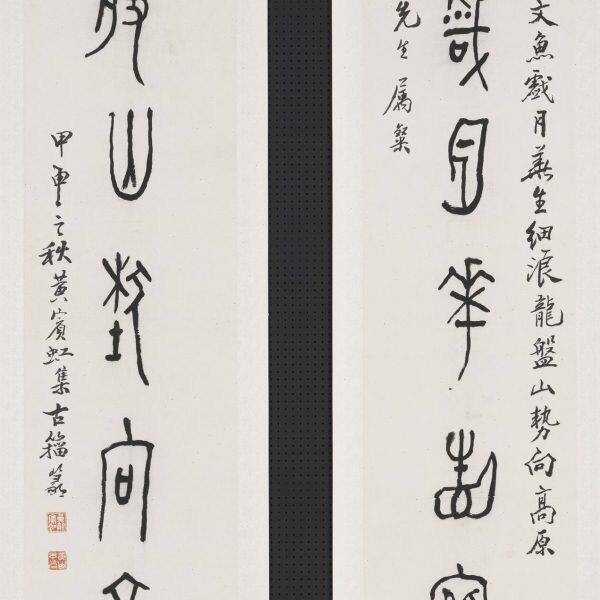 文魚戲月華生細浪龍盤山勢向高原
戲月華生
先生屬粲
般山埶向高
甲申之秋黃賓虹集古籀篆